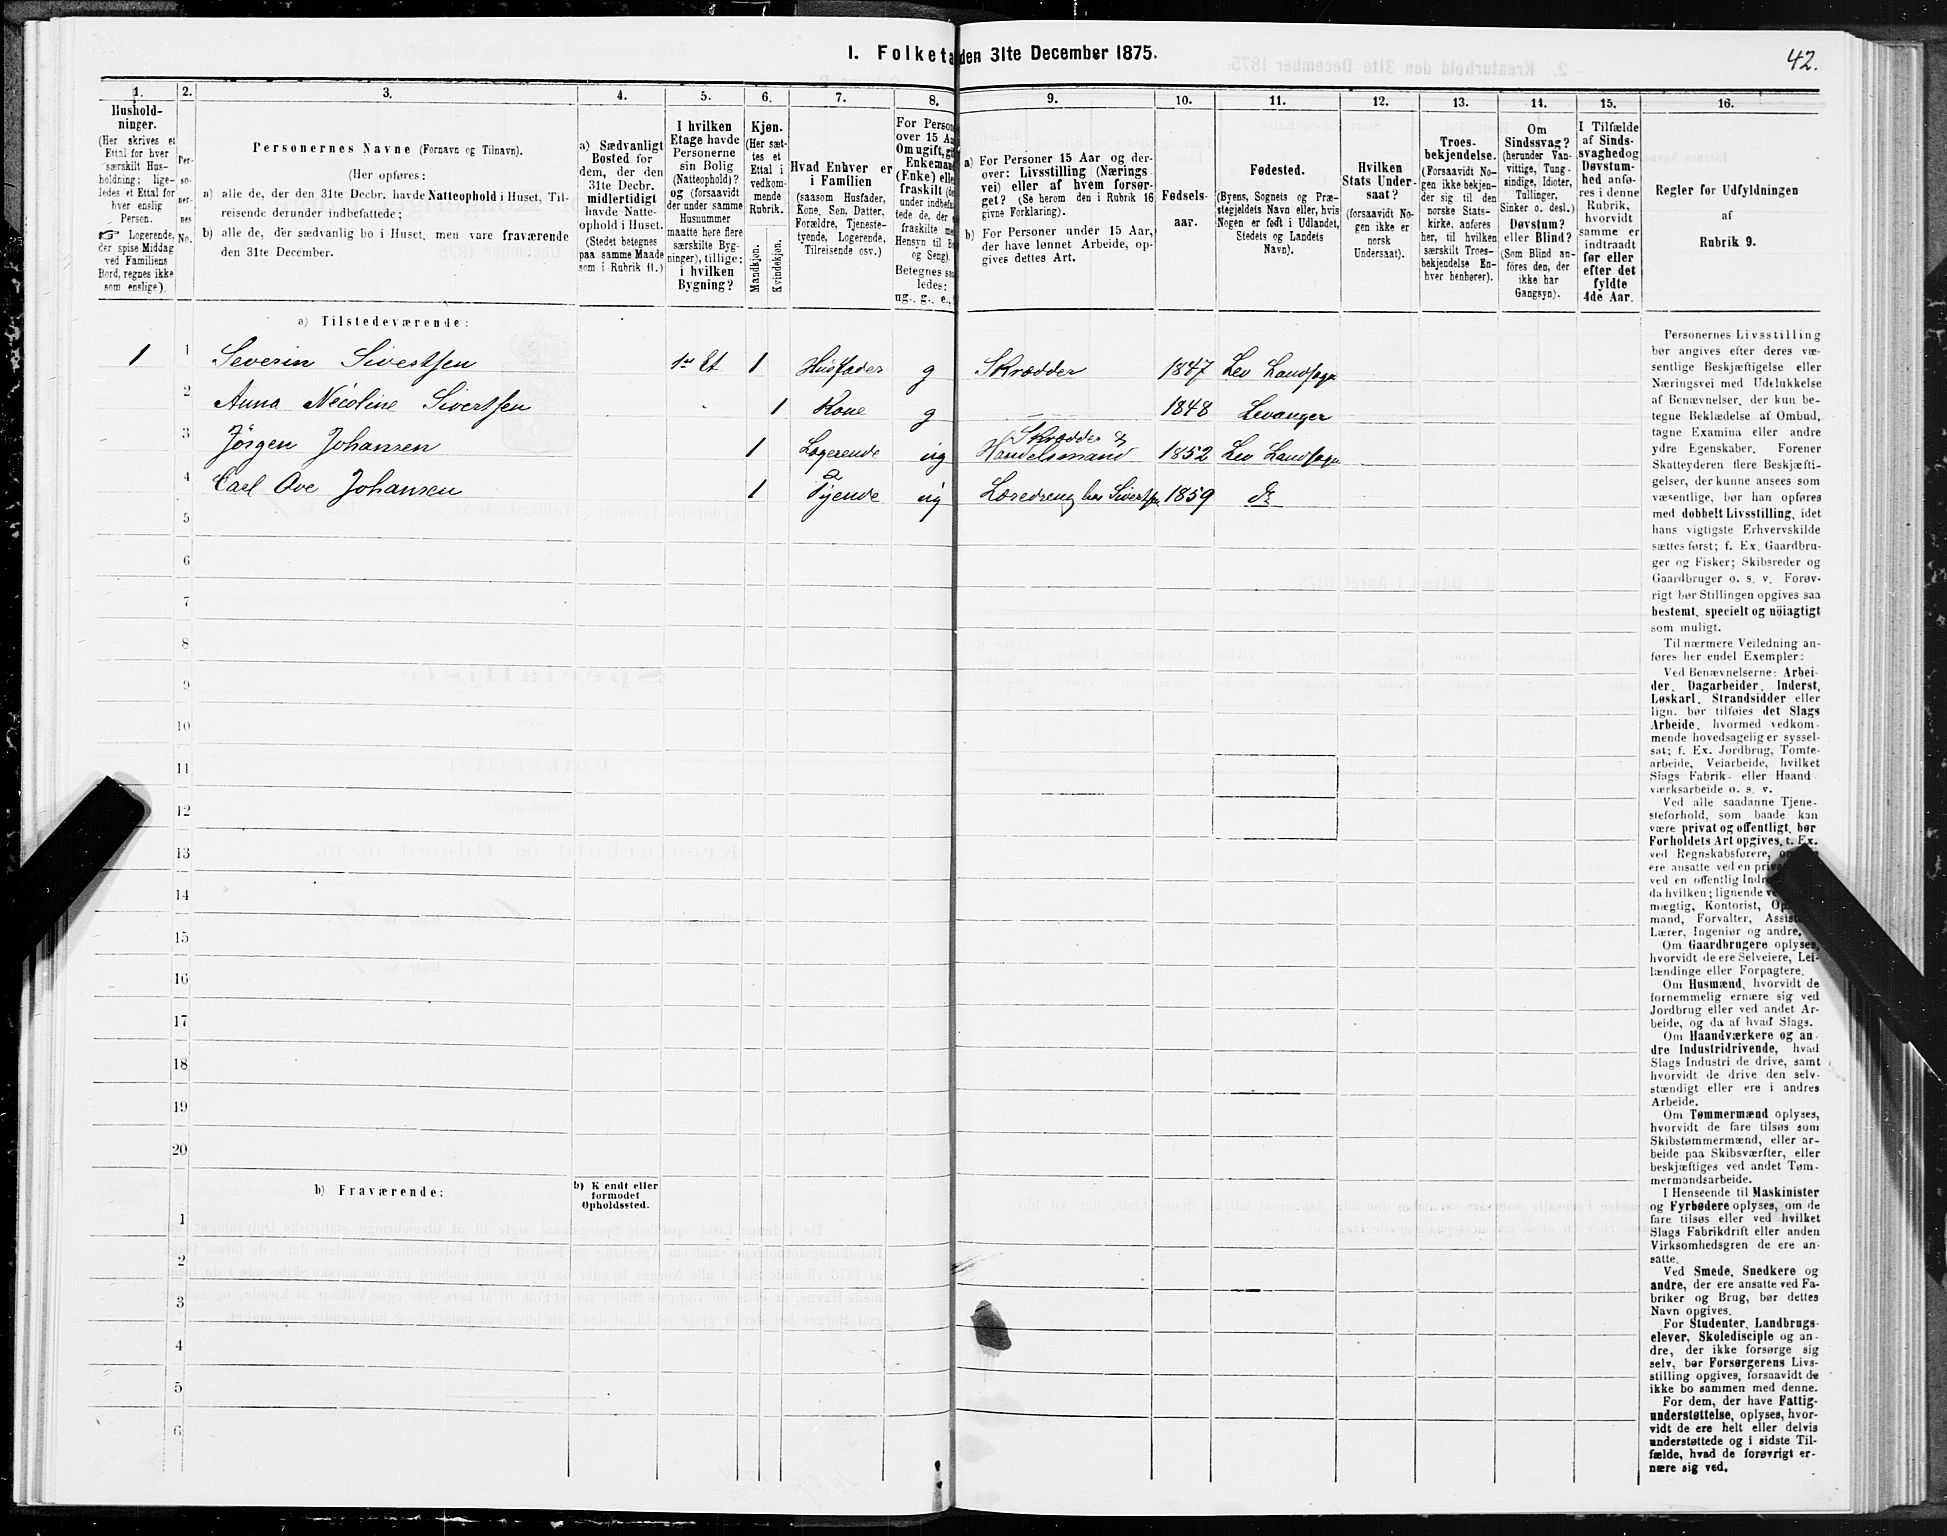 1. Folketa den 31te December 1875.
42.
1.
2.
3.
4.
5.
6.
7.
8.
9.
10.
11.
12.
13.
14.
15.
16.
Hushold-
ninger.
(Her skrives et
Ettal for hver
særskilt Hus-
holdning; lige-
ledes et Ettal for
hver enslig
Person.
☞ Logerende,
der spise Middag
ved Familiens
Bord, regnes ikke
som enslige).
Per-
so-
ner-
nes
No.
Personernes Navne (Fornavn og Tilnavn).
(Her opføres:
a) alle de, der den 31te Decbr. havde Natteophold i Huset, Til-
reisende derunder indbefattede;
b) alle de, der sædvanlig bo i Huset, men vare fraværende
den 31te December.
a) Sædvanligt
Bosted for
dem, der den
31te Decbr.
midlertidigt
havde Natte-
ophold i Huset.
(Stedet betegnes
paa samme Maade
som i Rubrik 11.)
I hvilken
Etage havde
Personerne
sin Bolig
(Natteophold)?
og (forsaavidt
der under samme
Husnummer
maatte høre flere
særskilte Byg-
ninger), tillige:
i hvilken
Bygning?
Kjøn.
(Her sæt-
tes et
Ettal i
vedkom-
mende
Rubrik.
Mandkjøn.
Kvindekjøn.
Hvad Enhver er
i Familien
(saasom Husfader,
Kone, Søn, Datter,
Forældre, Tjeneste-
tyende, Logerende,
Tilreisende osv.)
For Person
over 15 Aa
Om ugift, gi
Enkemand
(Enke) elle
fraskilt (de
under indbefat
tede de, der
fraskilte me
Hensyn til B
og Seng).
Betegnes saa
ledes:
ug., g., e.,
a) For Personer 15 Aar og der-
over: Livsstilling (Nærings
vei) eller af hvem forsør-
get? (Se herom den i Rubrik 16
givne Forklaring).
b) For Personer under 15 Aar,
der have lønnet Arbeide, op-
gives dettes Art.
Fødsels-
aar.
Fødested.
(Byens, Sognets og Præ-
stegjeldets Navn eller, hvis
Nogen er født i Udlandet,
Stedets og Landets
Navn).
Hvilken
Stats Under-
saat?
(forsaavidt No-
gen ikke er
norsk
Undersaat).
Troes-
bekjendelse.
(Forsaavidt No-
gen ikke bekjen-
der sig til den
norske Stats-
kirke, anføres
her, til hvilken
særskilt Troes-
bekjendelse En-
hver henhører).
Om
Sindssvag?
(herunder Van-
vittige, Tung-
sindige, Idioter,
Tullinger,
Sinker o. desl.)
Døvstum?
eller Blind?
(Som Blind an-
føres den, der
ikke har
Gangsyn).
I Tilfælde
af Sinds-
svaghed og
Døvstum-
hed anfø-
res i denne
Rubrik,
hvorvidt
samme er
indtraadt
før eller
efter det
fyldte
4de Aar.
Regler for Udfyldningen
af
Rubrik 9.
a) Tilstedeværende:
1 1 Severin Sivertsen 1st Et 1 Husfader g Skrædder 1847 Lev Landsogn
2 Anna Nicoline Sivertsen 1 Kone g 1848 Levanger
3 Jörgen Johansen 1 Logerende ug Skrædder & Handelsmand 1852 Lev Landsogn
4 Carl Ove Johansen 1 Tyende ug Læredreng hos Sivertsen 1859 do
5
6
7
8
9
10
11
12
13
14
15
16
17
18
19
20
b) Fraværende:
b) Kjendt eller
formodet
Opholdssted.
1
2
3
4
5
6
Personernes Livsstilling
bør angives efter deres væ-
sentlige Beskjæftigelse eller
Næringsvei med Udelukkelse
af Benævnelser, der kun be-
tegne Beklædelse af Ombud,
tagne Examina eller andre
ydre Egenskaber. Forener
Skatteyderen flere Beskjæfti-
gelser, der kunne ansees som
væsentlige, bør han opføres
med dobbelt Livsstilling, idet
hans vigtigste Erhvervskilde
sættes først; f. Ex. Gaardbru-
ger og Fisker; Skibsreder og
Gaardbruger o. s. v. Forøv-
rigt bør Stillingen opgives saa
bestemt, specielt og nöiagtigt
som muligt.
Til nærmere Veiledning an-
føres her endel Exempler:
Ved Benævnelserne: Arbei-
der, Dagarbeider, Inderst,
Løskarl, Strandsidder eller
lign. bør tilføies det Slags
Arbeide, hvormed vedkom-
mende hovedsagelig er syssel-
sat; f. Ex. Jordbrug, Tomte-
arbeide, Veiarbeide, hvilket
Slags Fabrik- eller Haand
værksarbeide o. s. v.
Ved alle saadanne Tjene-
steforhold, som baade kan
være privat og offentligt, bør
Forholdets Art opgives, t. Ex.
ved Regnskabsførere, o
ere ansatte ved en priva
ved en offentlig Ind
da hvilken; lignende ve
mægtig, Kontorist, Op
mand, Forvalter, Assis
Lærer, Ingeniør og andre.
Om Gaardbrugere oplyses,
hvorvidt de ere Selveiere, Lei-
lændinge eller Forpagtere.
Om Husmænd, hvorvidt de
fornemmelig ernære sig ved
Jordbrug eller ved andet Ar-
beide, og da af hvad Slags.
Om Haandværkere og an-
dre Industridrivende, hvad
Slags Industri de drive, samt
hvorvidt de drive den selv-
stændigt eller ere i andres
Arbeide.
Om Tømmermænd oplyses,
hvorvidt de fare tilsøs som
Skibstømmermænd, eller ar-
beide paa Skibsværfter, eller
beskjæftiges ved andet Tøm-
mermandsarbeide.
I Henseende til Maskinister
og Fyrbødere oplyses, om de
fare tilsøs eller ved hvilket
Slags Fabrikdrift eller anden
Virksomhedsgren de ere an-
satte.
Ved Smede, Snedkere og
andre, der ere ansatte ved Fa-
briker og Brug, bør dettes
Navn opgives.
For Studenter, Landbrugs-
elever, Skoledisciple og an-
dre, der ikke forsørge sig
selv, bør Forsørgerens Livs-
stilling opgives, forsaavidt de
ikke bo sammen med denne.
For dem, der have Fattig-
understøttelse, oplyses, hvor-
vidt de ere helt eller delvis
understøttede og i sidste Til-
fælde, hvad de forøvrigt er-
nære sig ved.